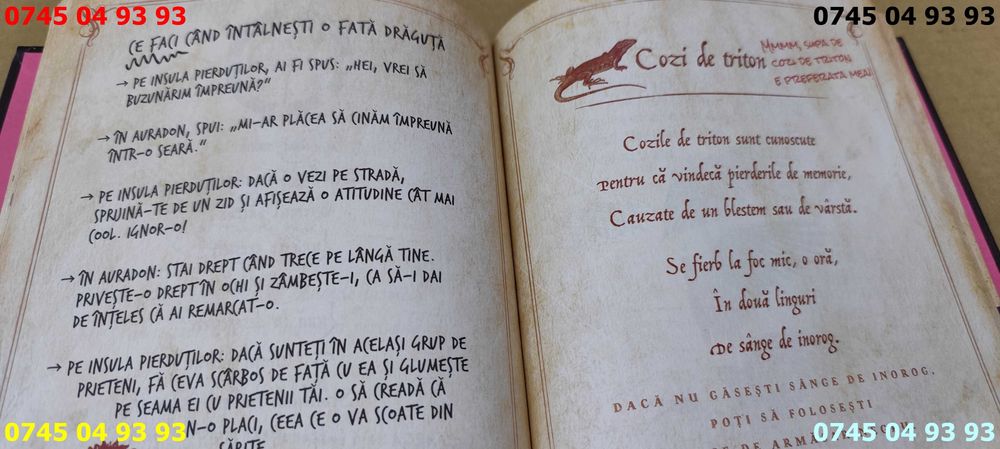 0745 04 93 93
0745 04 93 93
CE FACI CÂND ÎNTÂLNEȘTI O FATĂ DRĂGUȚĂ
→ PE INSULA PIERDUȚILOR, AI FI SPUS: „HEI, VREI SĂ
BUZUNĂRIM ÎMPREUNĂ?"
→ ÎN AURADON, SPUI: „MI-AR PLĂCEA SĂ CINĂM ÎMPREUNĂ
ÎNTR-O SEARĂ."
→ PE INSULA PIERDUȚILOR: DACĂ O VEZI PE STRADĂ,
SPRIJINĂ-TE DE UN ZID ȘI AFIȘEAZĂ O ATITUDINE CÂT MAI
COOL. IGNOR-O!
→ ÎN AURADON: STAI DREPT CÂND TRECE PE LÂNGĂ TINE.
PRIVEȘTE-O DREPT ÎN OCHI ȘI ZÂMBEȘTE-I, CA SĂ-I DAI
DE ÎNȚELES CĂ AI REMARCAT-O.
→ PE INSULA PIERDUȚILOR: DACĂ SUNTEȚI ÎN ACELAȘI GRUP DE
PRIETENI, FĂ CEVA SCÂRBOS DE FAȚĂ CU EA ȘI GLUMEȘTE
PE SEAMA EI CU PRIETENII TĂI. O SĂ CREADĂ CĂ
N-O PLACI, CEEA CE O VA SCOATE DIN
0745 04 93 93
Cozi de triton
MMMM, SUPA DE
COZI DE TRITON
E PREFERATA MEA!
Cozile de triton sunt cunoscute
Pentru că vindecă pierderile de memorie,
Cauzate de un blestem sau de vârstă.
Se fierb la foc mic, o oră,
În două linguri
De sânge de inorog.
DACĂ NU GĂSEȘTI SÂNGE DE INOROG,
POȚI SĂ FOLOSEȘTI
0745 04 93 93